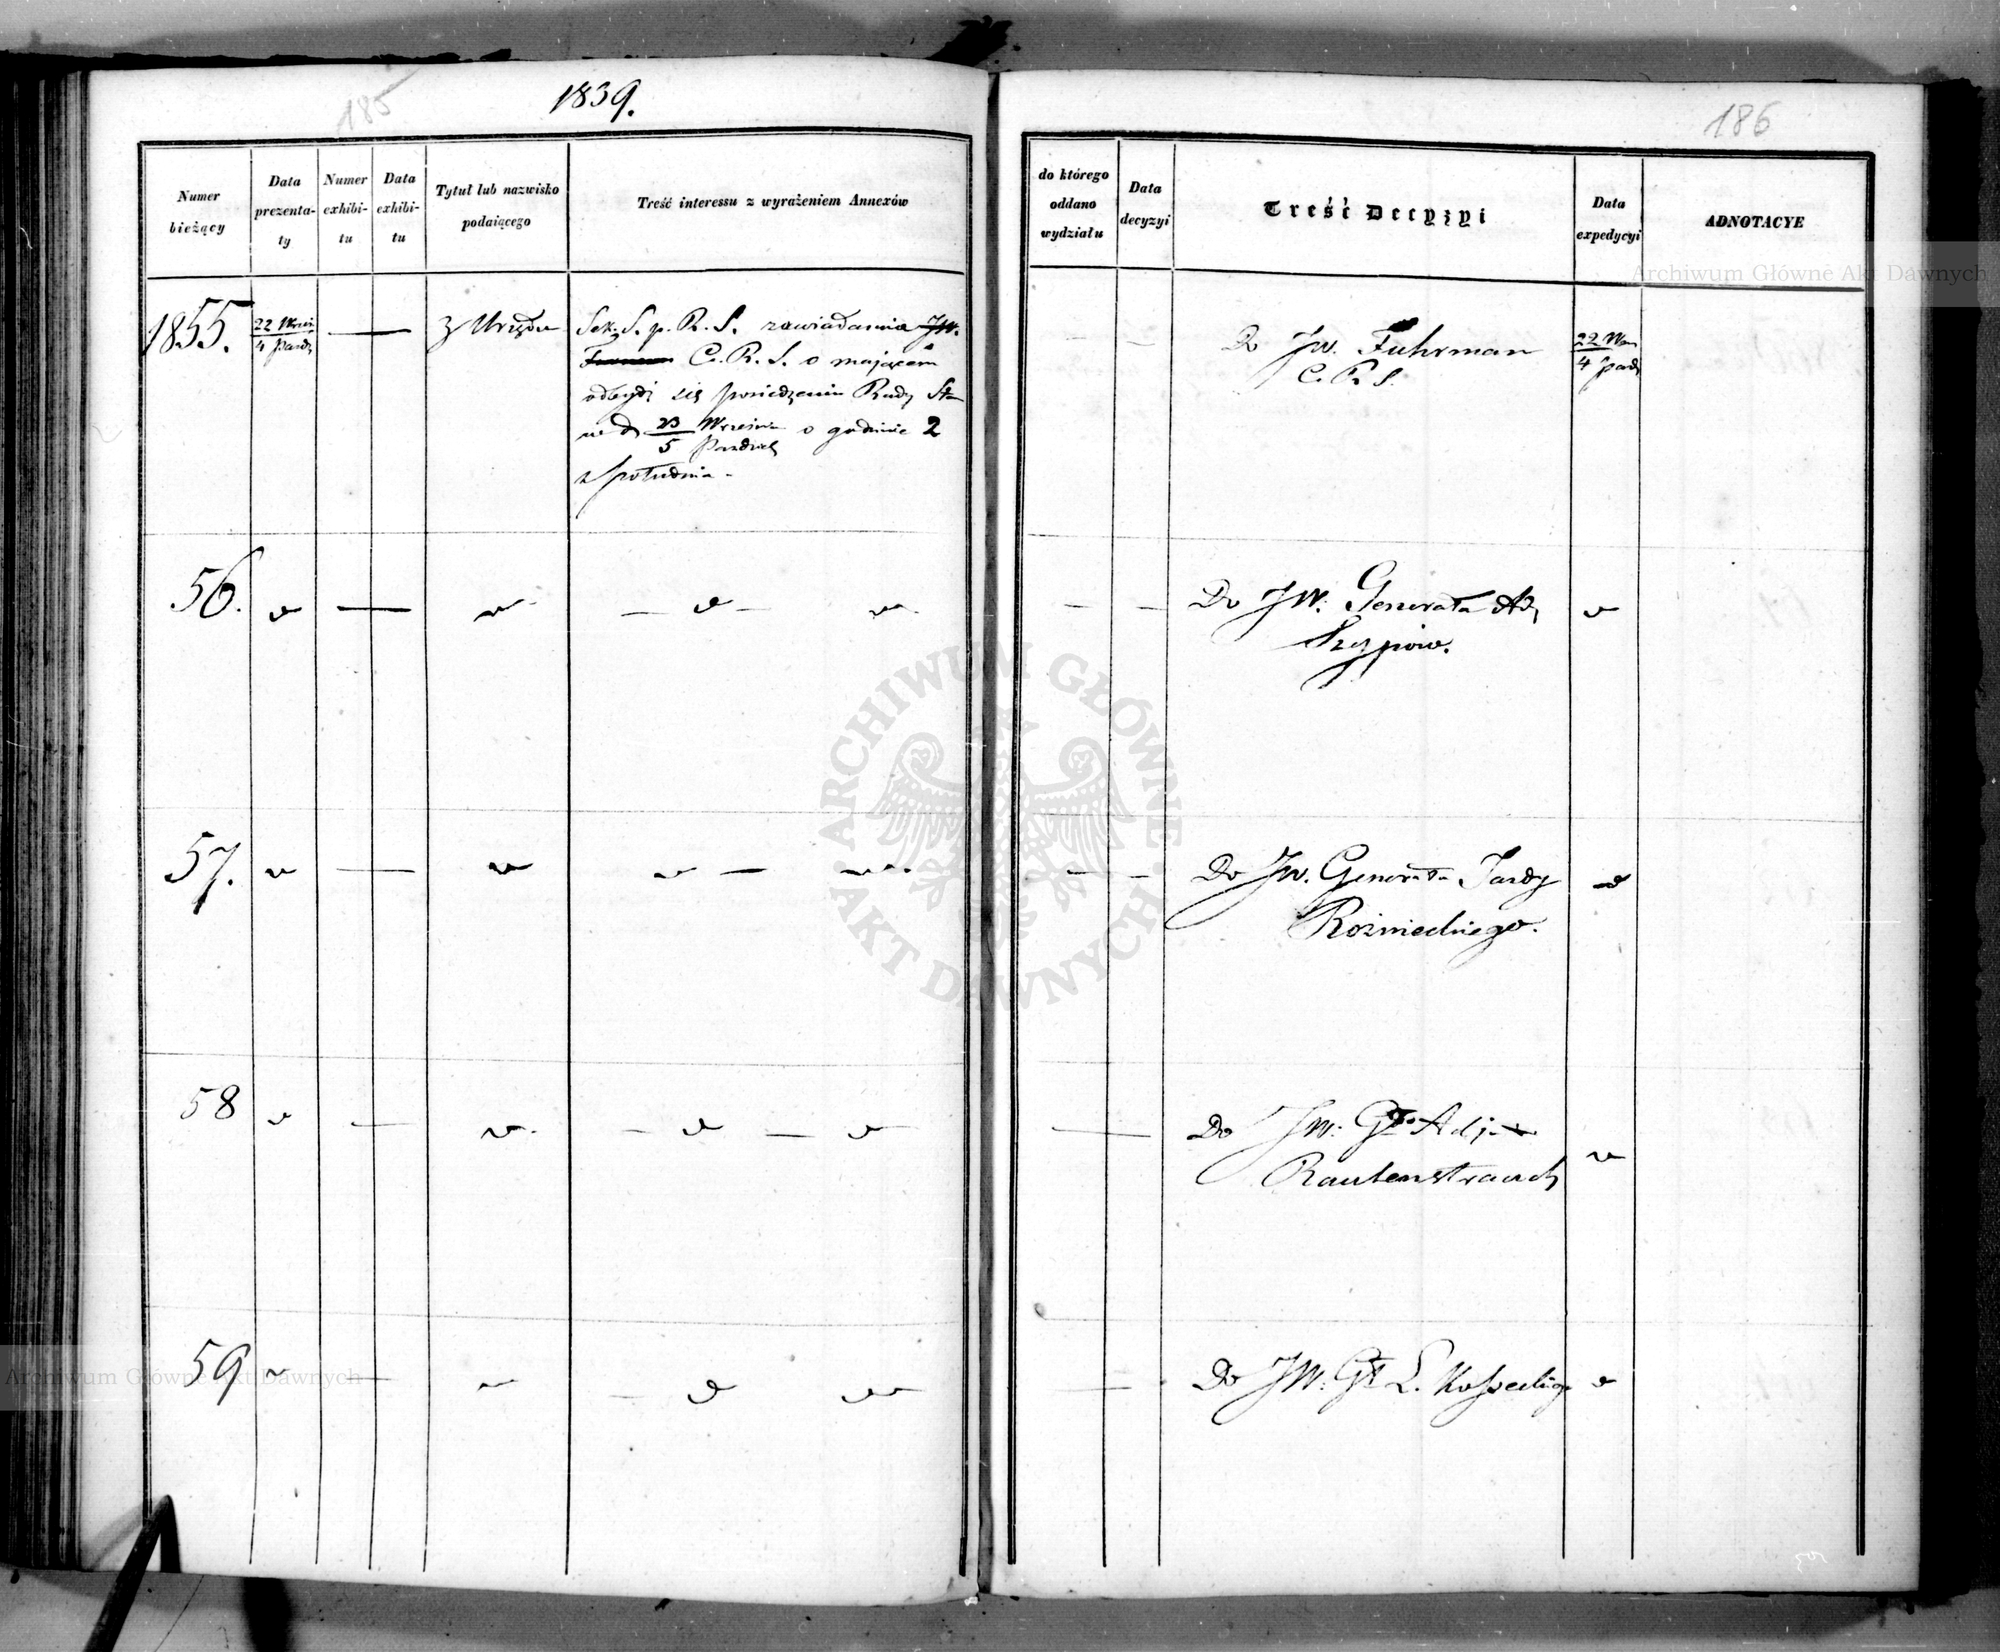 185
1839.
186
Numer
bieżący
Data
prezenta-
ty
Numer
exhibi-
tu
Data
exhibi-
tu
Tytuł lub nazwisko
podaiącego
Treść interessu z wyrażeniem Annexów
do którego
oddano
wydziału
Data
decyzyi
Treść Decyzyi
Data
expedycyi
ADNOTACYE
1855.
22 Wrześ
4 Paźdz
z Urzędu
Sek. S. p. R. S. zawiadamia JW.
C. R. S. o mającem
odbydź się posiedzeniu Rady Sta
nu d. 23 Września
5 Paździer o godzinie 2
z południa.
Do JW. Fuhrman
C. R. S.
22 Wrz
4 Paźdz
56.
Do JW. Generała Adj
Szypow.
57.
Do JW. Generała Jazdy
Rożnieckiego.
58
Do JW. Gła Adj.
Rautenstrauch
59
Do JW. Gł L. Kosseckiego
ARCHIWUM GŁÓWNE AKT DAWNYCH
Archiwum Główne Akt Dawnych
Archiwum Główne Akt Dawnych